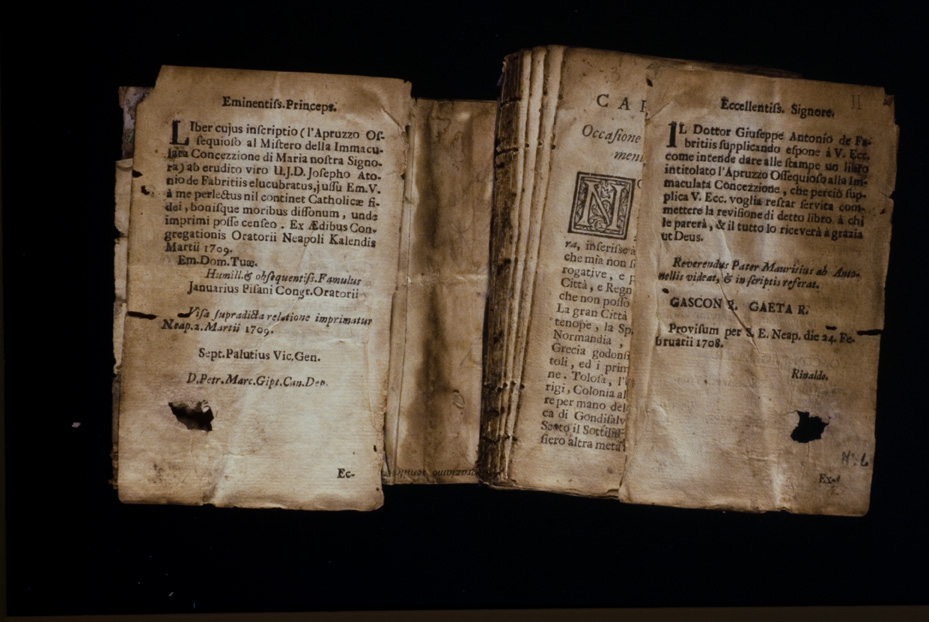 Eminentiſs. Princeps.
LIber cujus inſcriptio (l'Apruzzo Oſ-
ſequioſo al Miſtero della Immacu-
lata Concezzione di Maria noſtra Signo-
ra) ab erudito viro U.J.D. Joſepho Ato-
nio de Fabritiis elucubratus, juſſu Em. V.
à me perlectus nil continet Catholicæ fi-
dei, boniſque moribus diſſonum, unde
imprimi poſſe cenſeo. Ex Ædibus Con-
gregationis Oratorii Neapoli Kalendis
Martii 1709.
Em. Dom. Tuæ.
Humill. & obſequentiſſ. Famulus
Januarius Piſani Congr. Oratorii
Viſa ſupradicta relatione imprimatur
Neap. 2. Martii 1709.
Sept. Palutius Vic. Gen.
D. Petr. Marc. Gipt. Can. Dep.
Ec-
CAP
Occaſione
men
N
ra, inſeriſce à
che mia non
rogative, e
Città, e Regn
che non poſſo
La gran Città
tenope, la Sp
Normandia,
Grecia godonſi
toli, ed i prim
ne. Toloſa, l'
rigi, Colonia al
re per mano del
ca di Gondiſalv
Scoto il Sottiliſſ
ſiero altra meta
Eccellentiſs. Signore.
IL Dottor Giuſeppe Antonio de Fa-
britiis ſupplicando eſpone à V. Ecc.
come intende dare alle ſtampe un libro
intitolato l'Apruzzo Oſſequioſo alla Im-
maculata Concezzione, che perciò ſup-
plica V. Ecc. voglia reſtar ſervita com-
mettere la reviſione di detto libro à chi
le parerà, & il tutto lo riceverà a grazia
ut Deus.
Reverendus Pater Mauritius ab Anto-
nellis videat, & in ſcriptis referat.
GASCON R. GAETA R.
Proviſum per S. E. Neap. die 24. Fe-
bruarii 1708.
Rinaldo.